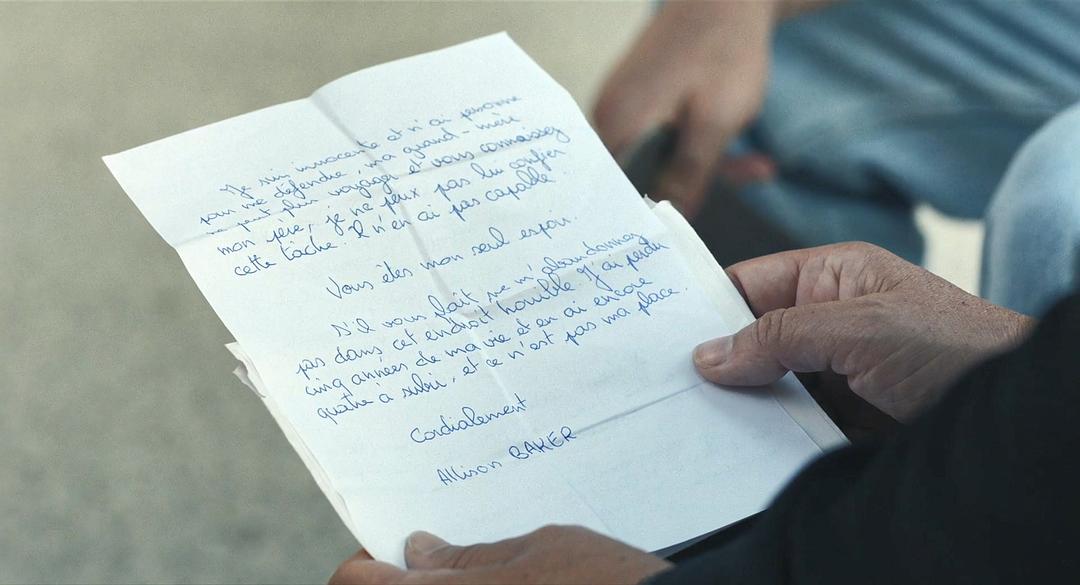 Je suis innocente et n'ai personne
pour me défendre, ma grand-mère
ne peut plus voyager et vous connaissez
mon père, je ne peux pas lui confier
cette tâche. Il n'en ai pas capable.
Vous êtes mon seul espoir.
S'il vous plaît ne m'abandonnez
pas dans cet endroit horrible. J'ai perdu
cinq années de ma vie et en ai encore
quatre à subir, et ce n'est pas ma place.
Cordialement
Allison BAKER